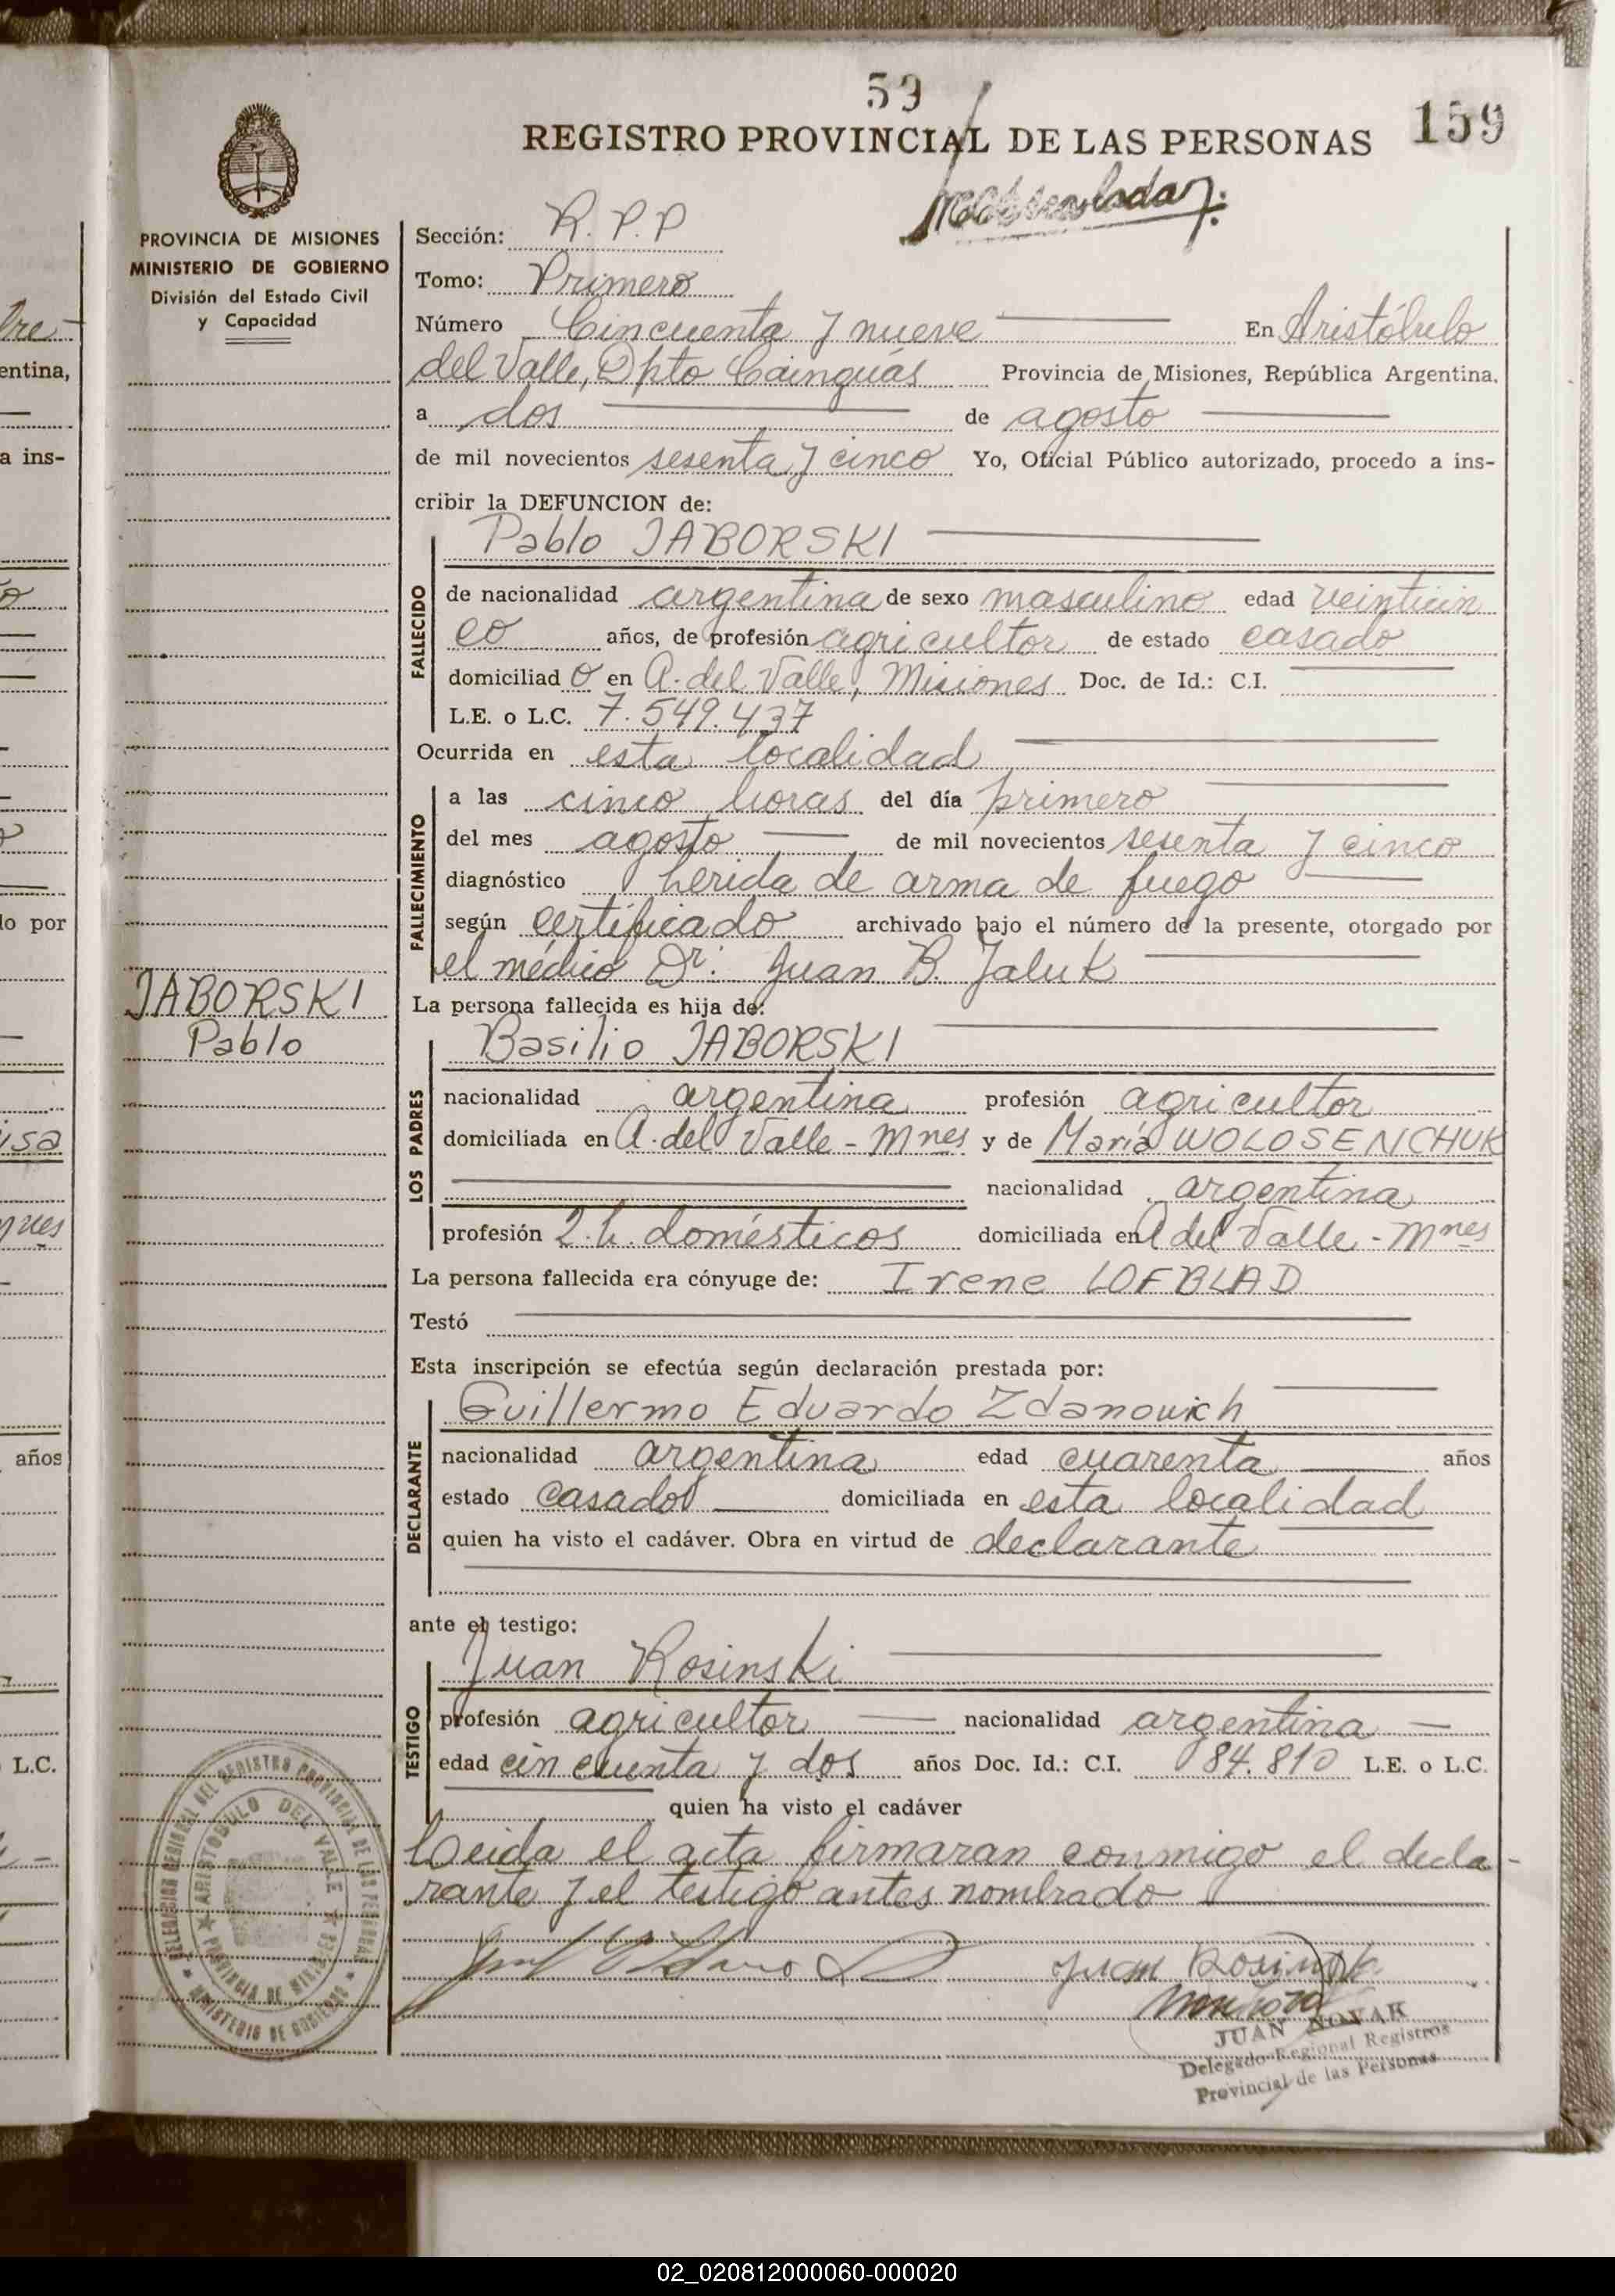 59
159
REGISTRO PROVINCIAL DE LAS PERSONAS
PROVINCIA DE MISIONES
MINISTERIO DE GOBIERNO
División del Estado Civil
y Capacidad
Sección: R. P. P
Tomo: Primero
Número Cincuenta y nueve En Aristóbulo
del Valle, Dpto Cainguás Provincia de Misiones, República Argentina.
a dos de agosto
de mil novecientos sesenta y cinco Yo, Oficial Público autorizado, procedo a ins-
cribir la DEFUNCION de:
Pablo JABORSKI
FALLECIDO
de nacionalidad argentina de sexo masculino edad veinticin
co años, de profesión agricultor de estado casado
domiciliad o en A. del Valle, Misiones Doc. de Id.: C.I.
L.E. o L.C. 7.549.437
Ocurrida en esta localidad
FALLECIMIENTO
a las cinco horas del día primero
del mes agosto de mil novecientos sesenta y cinco
diagnóstico herida de arma de fuego
según certificado archivado bajo el número de la presente, otorgado por
el médico Dr. Juan B. Jaluk
JABORSKI
Pablo
La persona fallecida es hija de:
Basilio JABORSKI
LOS PADRES
nacionalidad argentina profesión agricultor
domiciliada en A. del Valle - Mnes y de María WOLOSENCHUK
nacionalidad argentina
profesión 2. h. domésticos domiciliada en A del Valle - Mnes
La persona fallecida era cónyuge de: Irene LOFBLAD
Testó
Esta inscripción se efectúa según declaración prestada por:
Guillermo Eduardo Zdanowich
DECLARANTE
nacionalidad argentina edad cuarenta años
estado casado domiciliada en esta localidad
quien ha visto el cadáver. Obra en virtud de declarante
ante el testigo:
Juan Rosinski
TESTIGO
profesión agricultor nacionalidad argentina
edad cincuenta y dos años Doc. Id.: C.I. 84.810 L.E. o L.C.
quien ha visto el cadáver
Leida el acta firmaran conmigo el decla-
rante y el testigo antes nombrado
DELEGACION REGIONAL DEL REGISTRO PROVINCIAL DE LAS PERSONAS
ARISTOBULO DEL VALLE
PROVINCIA DE MISIONES
MINISTERIO DE GOBIERNO
JUAN NOVAK
Delegado Regional Registros
Provincial de las Personas
entina,
a ins-
lo por
años
L.C.
02_020812000060-000020